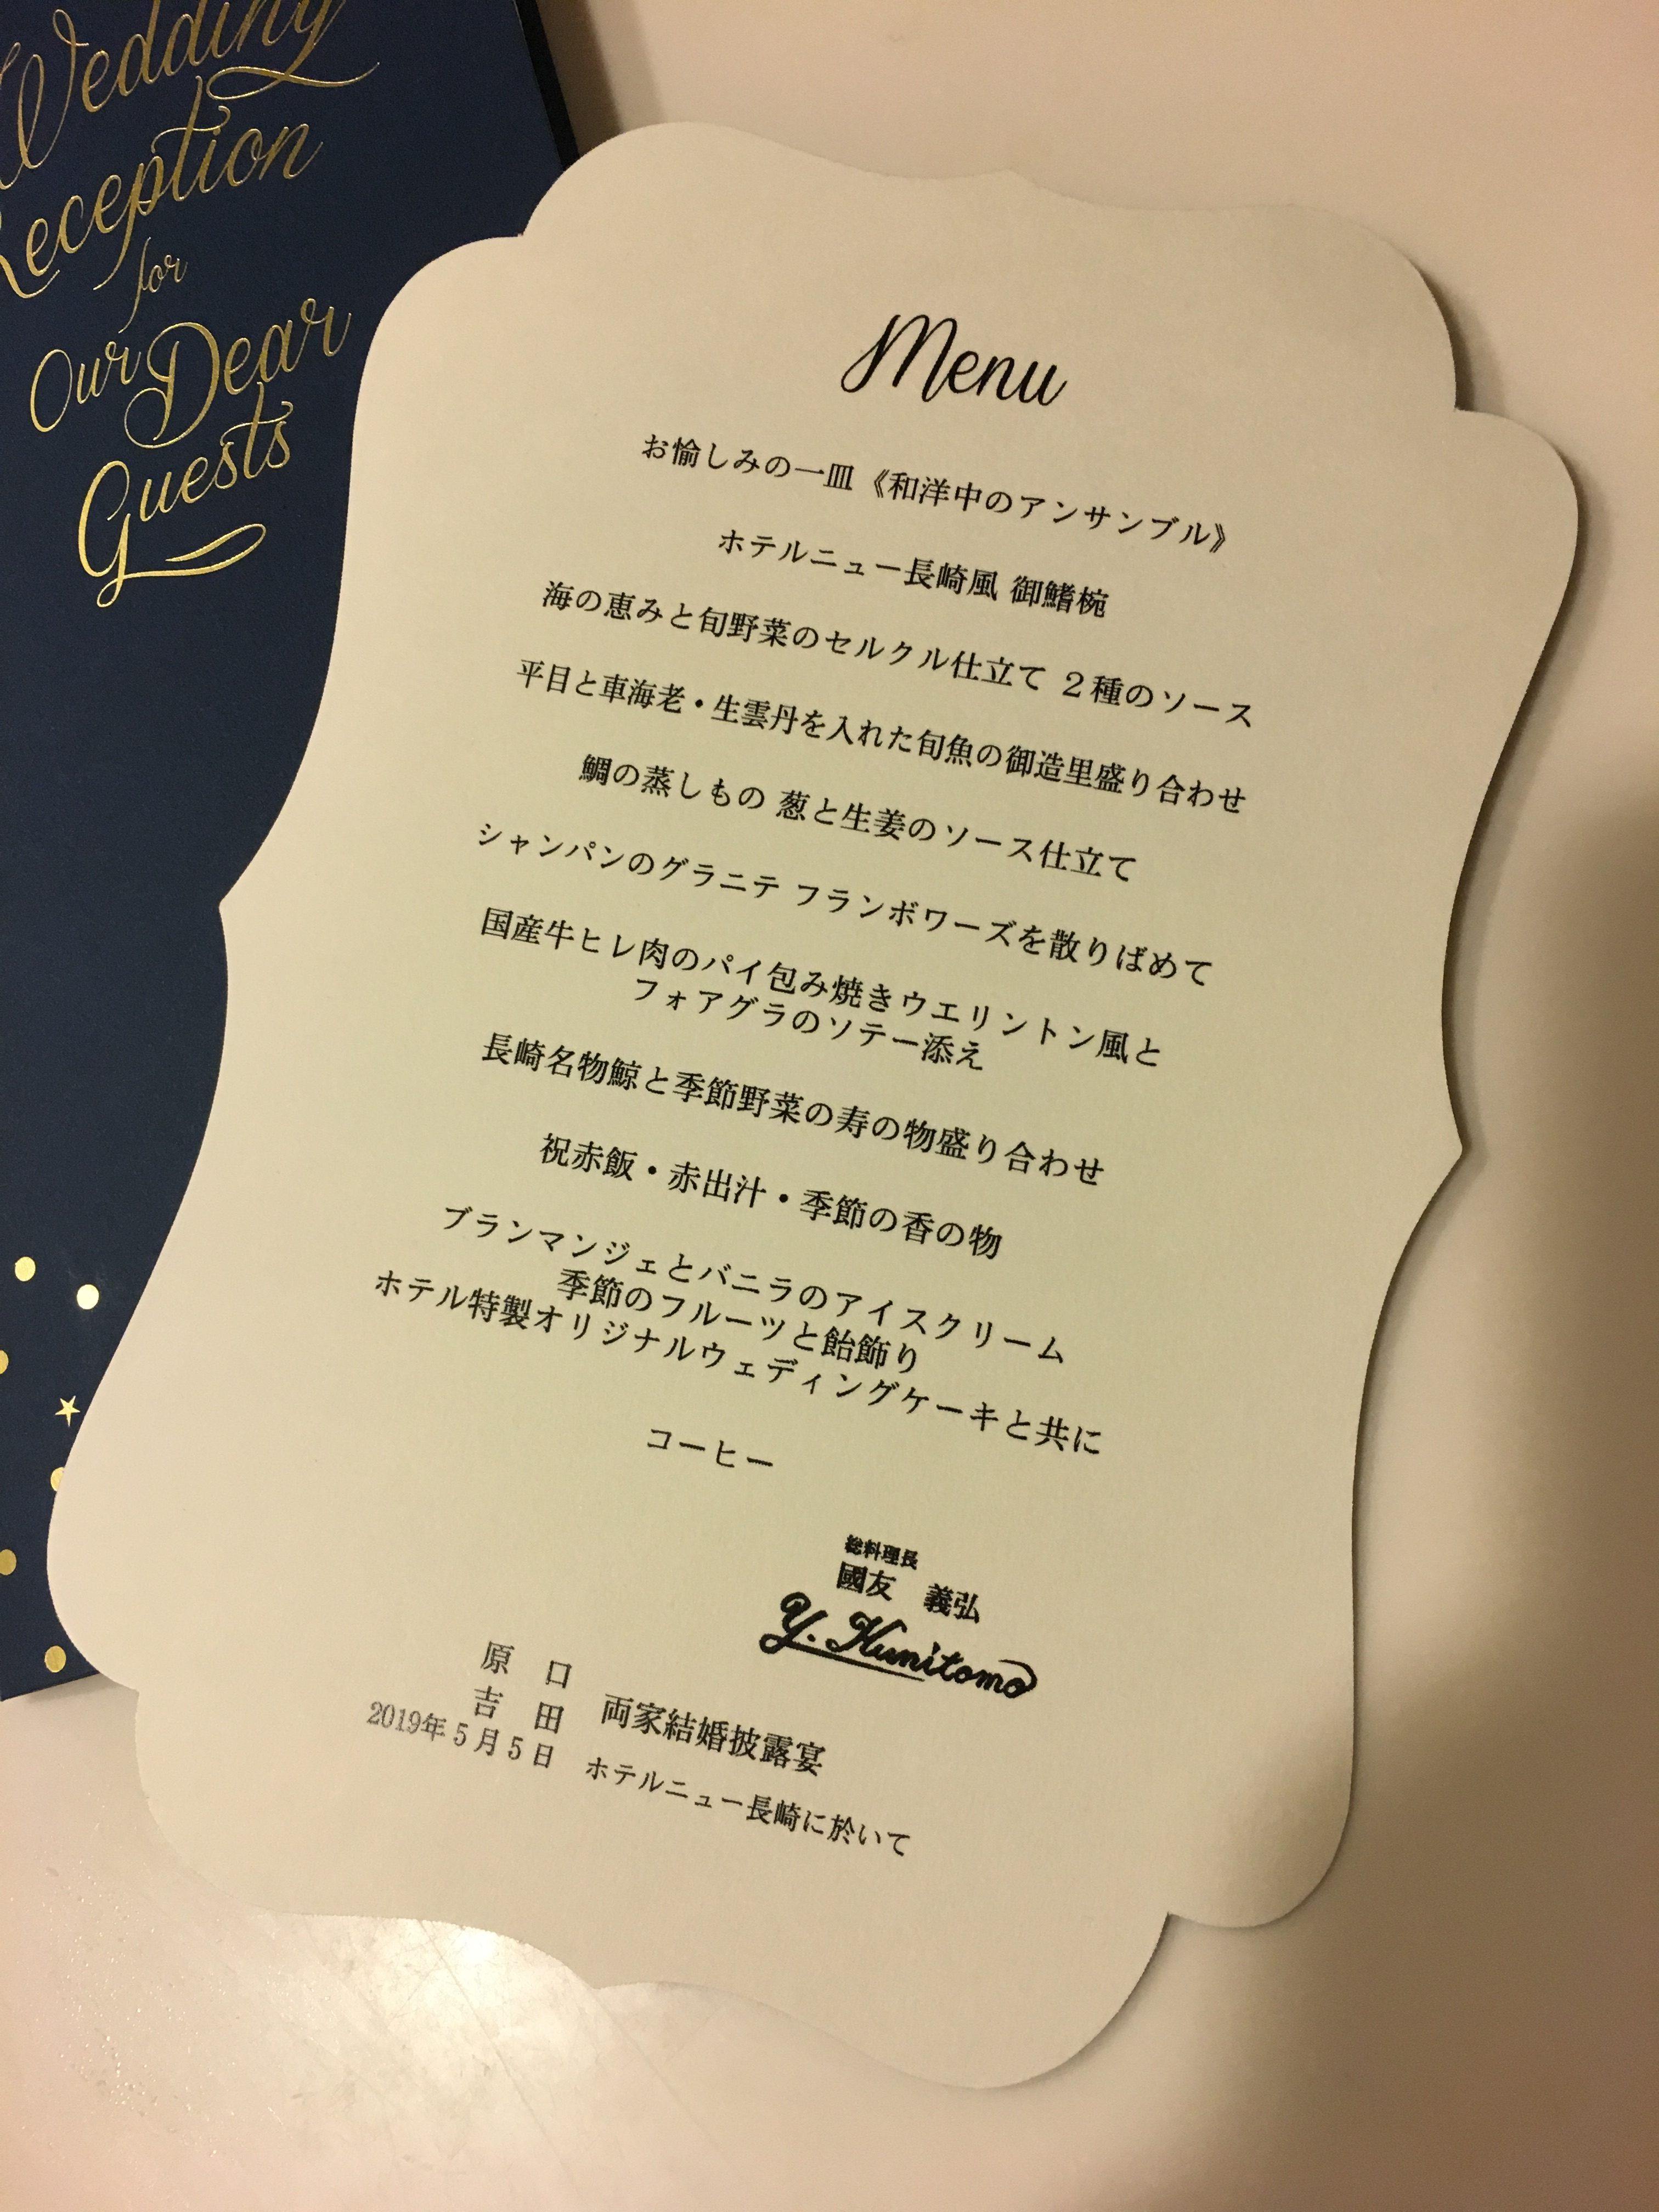 Wedding
Reception
for
Our Dear
Guests
Menu
お愉しみの一皿《和洋中のアンサンブル》
ホテルニュー長崎風 御鰭椀
海の恵みと旬野菜のセルクル仕立て ２種のソース
平目と車海老・生雲丹を入れた旬魚の御造里盛り合わせ
鯛の蒸しもの 葱と生姜のソース仕立て
シャンパンのグラニテ フランボワーズを散りばめて
国産牛ヒレ肉のパイ包み焼きウエリントン風と
フォアグラのソテー添え
長崎名物鯨と季節野菜の寿の物盛り合わせ
祝赤飯・赤出汁・季節の香の物
ブランマンジェとバニラのアイスクリーム
季節のフルーツと飴飾り
ホテル特製オリジナルウェディングケーキと共に
コーヒー
総料理長
國友 義弘
Y. Kunitomo
原 口
吉 田 両家結婚披露宴
2019年５月５日 ホテルニュー長崎に於いて